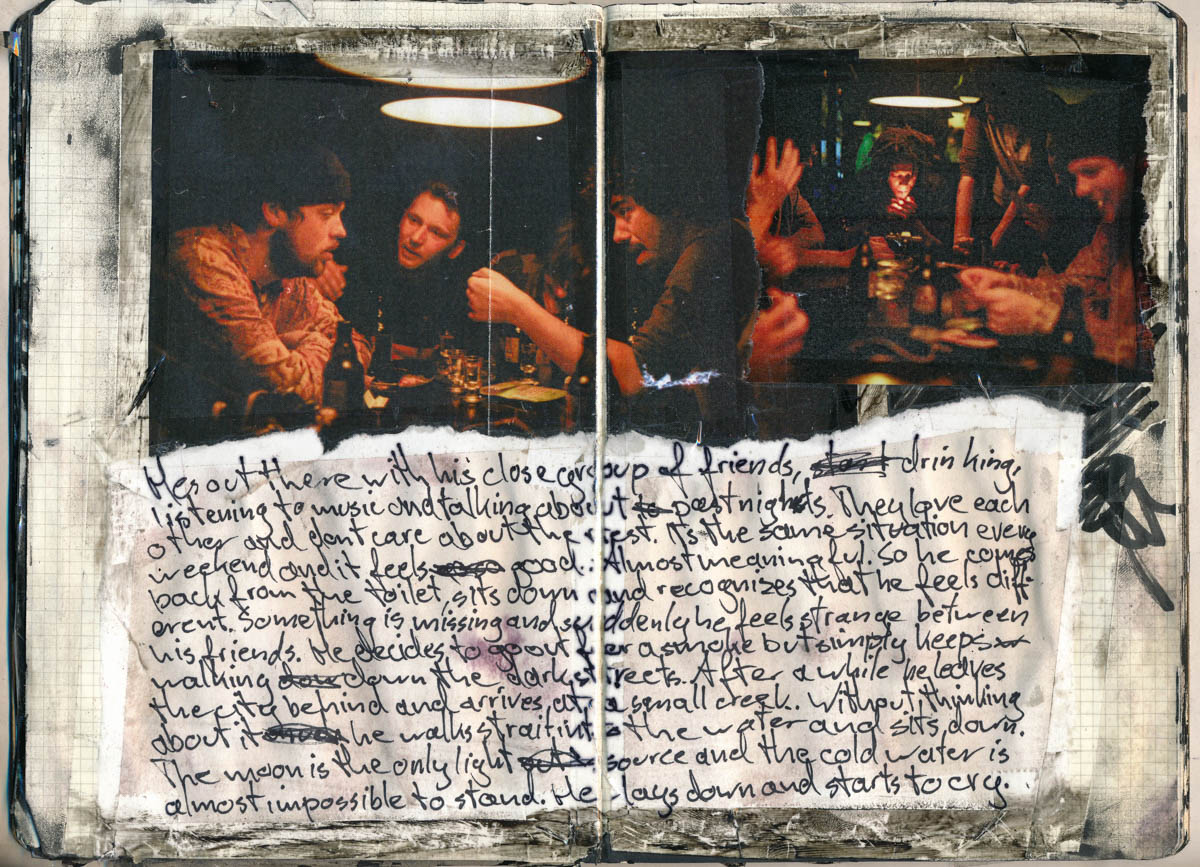 He's out there with his close group of friends, drinking,
listening to music and talking about past nights. They love each
other and dont care about the rest. It's the same situation every
weekend and it feels good. Almost meaningful. So he comes
back from the toilet, sits down and recognizes that he feels diff-
erent. Something is missing and suddenly he feels strange between
his friends. He decides to go out for a smoke but simply keeps
walking down the dark streets. After a while he leaves
the city behind and arrives at a small creek. Without thinking
about it he walks strait into the water and sits down.
The moon is the only light source and the cold water is
almost impossible to stand. He lays down and starts to cry.